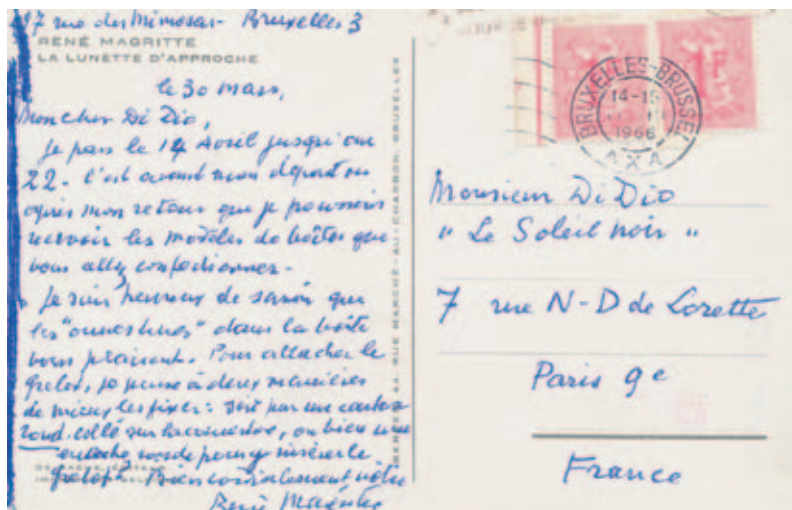 97 rue des Mimosas - Bruxelles 3
RENÉ MAGRITTE
LA LUNETTE D'APPROCHE
le 30 mars,
Mon cher Di Dio,
Je pars le 14 Avril jusqu'au
22 - C'est avant mon départ ou
après mon retour que je pourrais
recevoir les modèles de boîtes que
vous allez confectionner -
Je suis heureux de savoir que
les "ouvertures" dans la boîte
vous plaisent. Pour attacher le
grelot, je pense à deux manières
de mieux les fixer : soit par un carton
rond collé sur la
ronde pour y insérer le
grelot. Bien cordialement vôtre
René Magritte
44 RUE MARCHÉ-AU-CHARBON, BRUXELLES
BRUXELLES-BRUSSEL
14-15
1966
AXA
1F
Monsieur Di Dio
"Le Soleil noir"
7 rue N-D de Lorette
Paris 9e
France